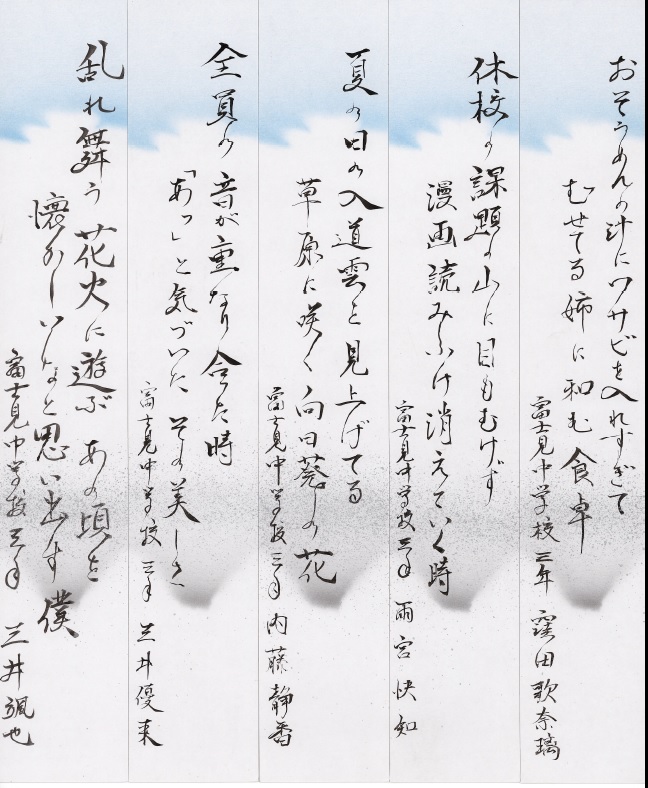 おそうめんの汁にワサビを入れすぎて
むせてる姉に和む食卓
富士見中学校 三年 窪田歌奈璃
休校の課題の山に目もむけず
漫画読みふけ消えていく時
富士見中学校 三年 雨宮快知
夏の日の入道雲を見上げてる
草原に咲く向日葵の花
富士見中学校 三年 内藤静香
全員の音が重なり合った時
「あっ」と気づいた その美しさ
富士見中学校 三年 三井優来
乱れ舞う花火に遊ぶ あの頃を
懐かしいなと思い出す僕
富士見中学校 三年 三井颯也